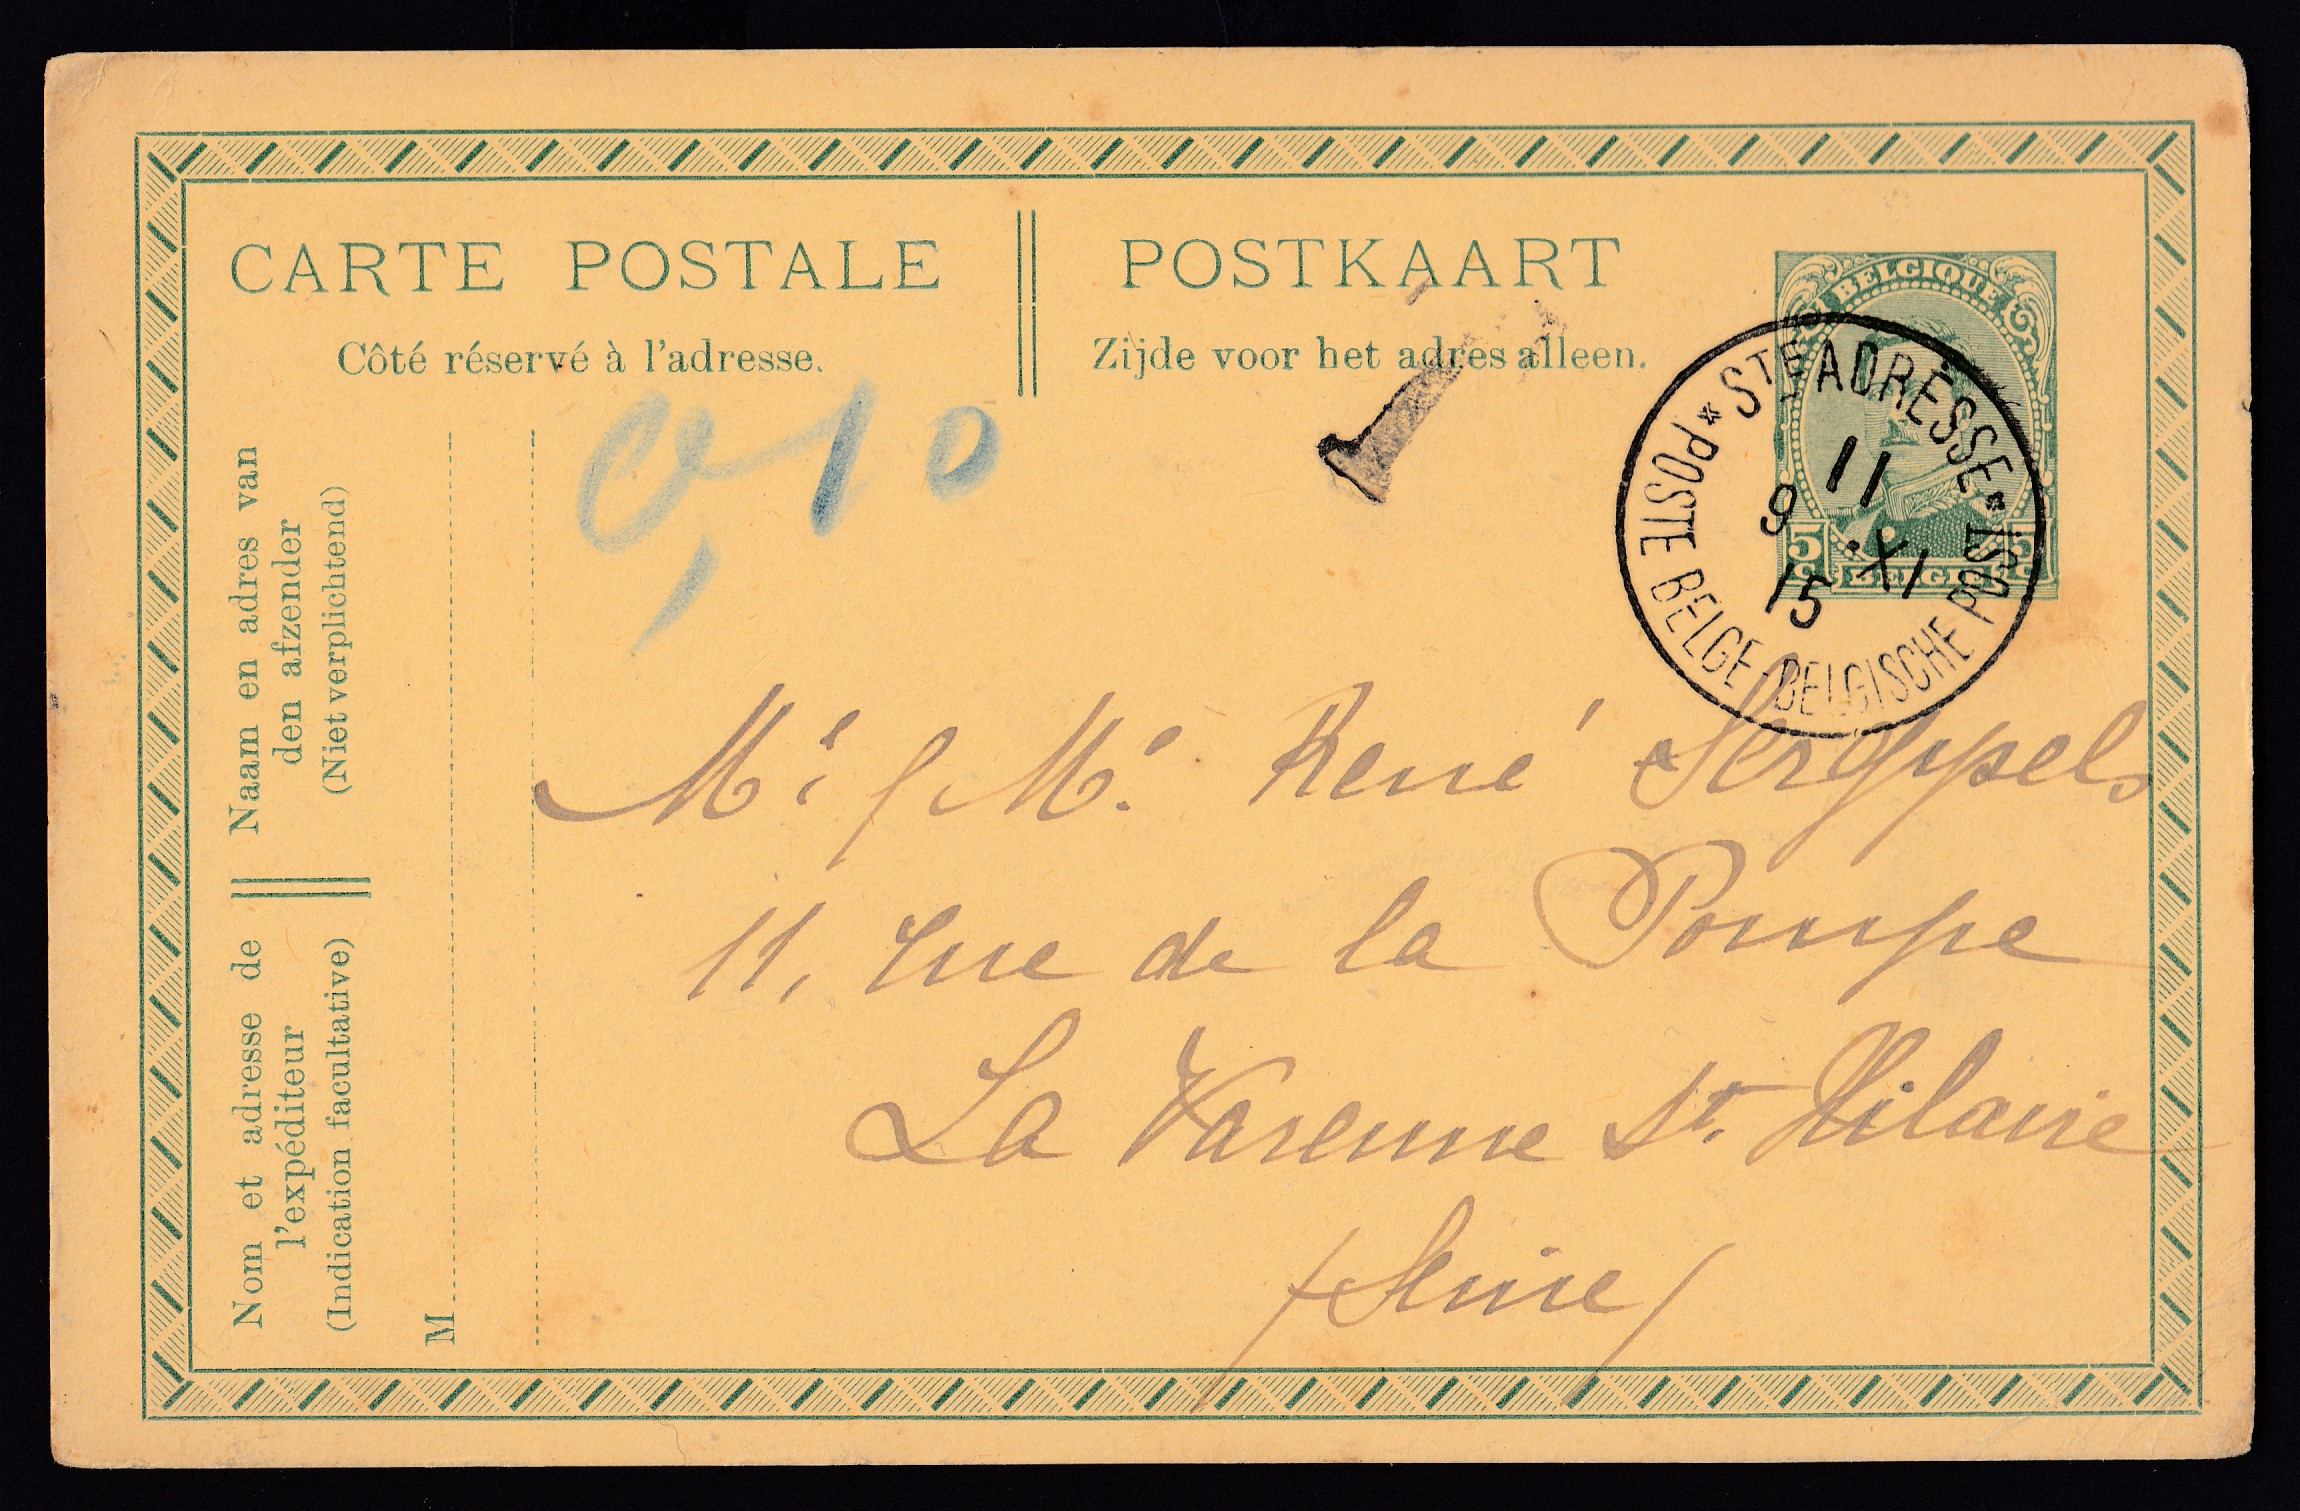 CARTE POSTALE
Côté réservé à l'adresse.
POSTKAART
Zijde voor het adres alleen.
BELGIQUE
5 C 5 C
BELGIË
* STE ADRESSE * POSTE BELGE - BELGISCHE POST
11
9 XI
15
T
0,10
Naam en adres van
den afzender
(Niet verplichtend)
Nom et adresse de
l'expéditeur
(Indication facultative)
M
Mr & Me René
11, rue de la Pompe
La Varenne St. Hilaire
(Seine)